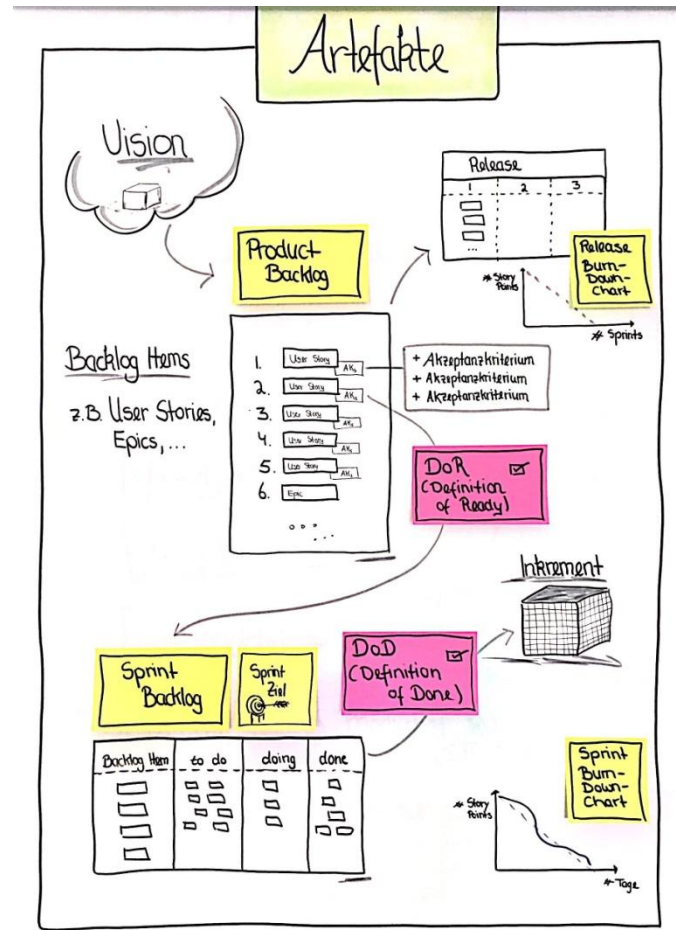 Artefakte
Vision
Release
1 2 3
...
Release
Burn-
Down-
Chart
# Story
Points
# Sprints
Product
Backlog
Backlog Items
z.B. User Stories,
Epics, ...
1. User Story AK₁
2. User Story AK₂
3. User Story
4. User Story
5. User Story
6. Epic
...
+ Akzeptanzkriterium
+ Akzeptanzkriterium
+ Akzeptanzkriterium
DoR
(Definition
of Ready)
Inkrement
DoD
(Definition
of Done)
Sprint
Backlog
Sprint
Ziel
Backlog Item to do doing done
Sprint
Burn-
Down-
Chart
# Story
Points
# Tage